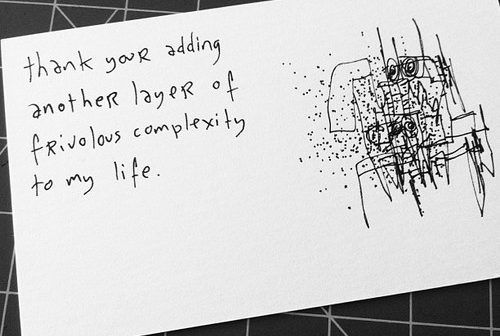 thank your adding
another layer of
frivolous complexity
to my life.